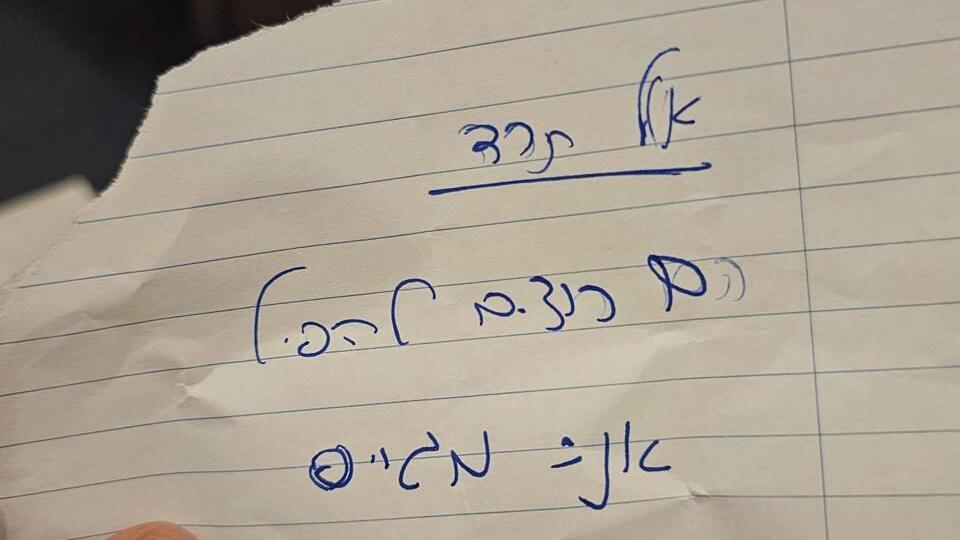 אל תרד
הם רוצים להפיל
אני מגייס